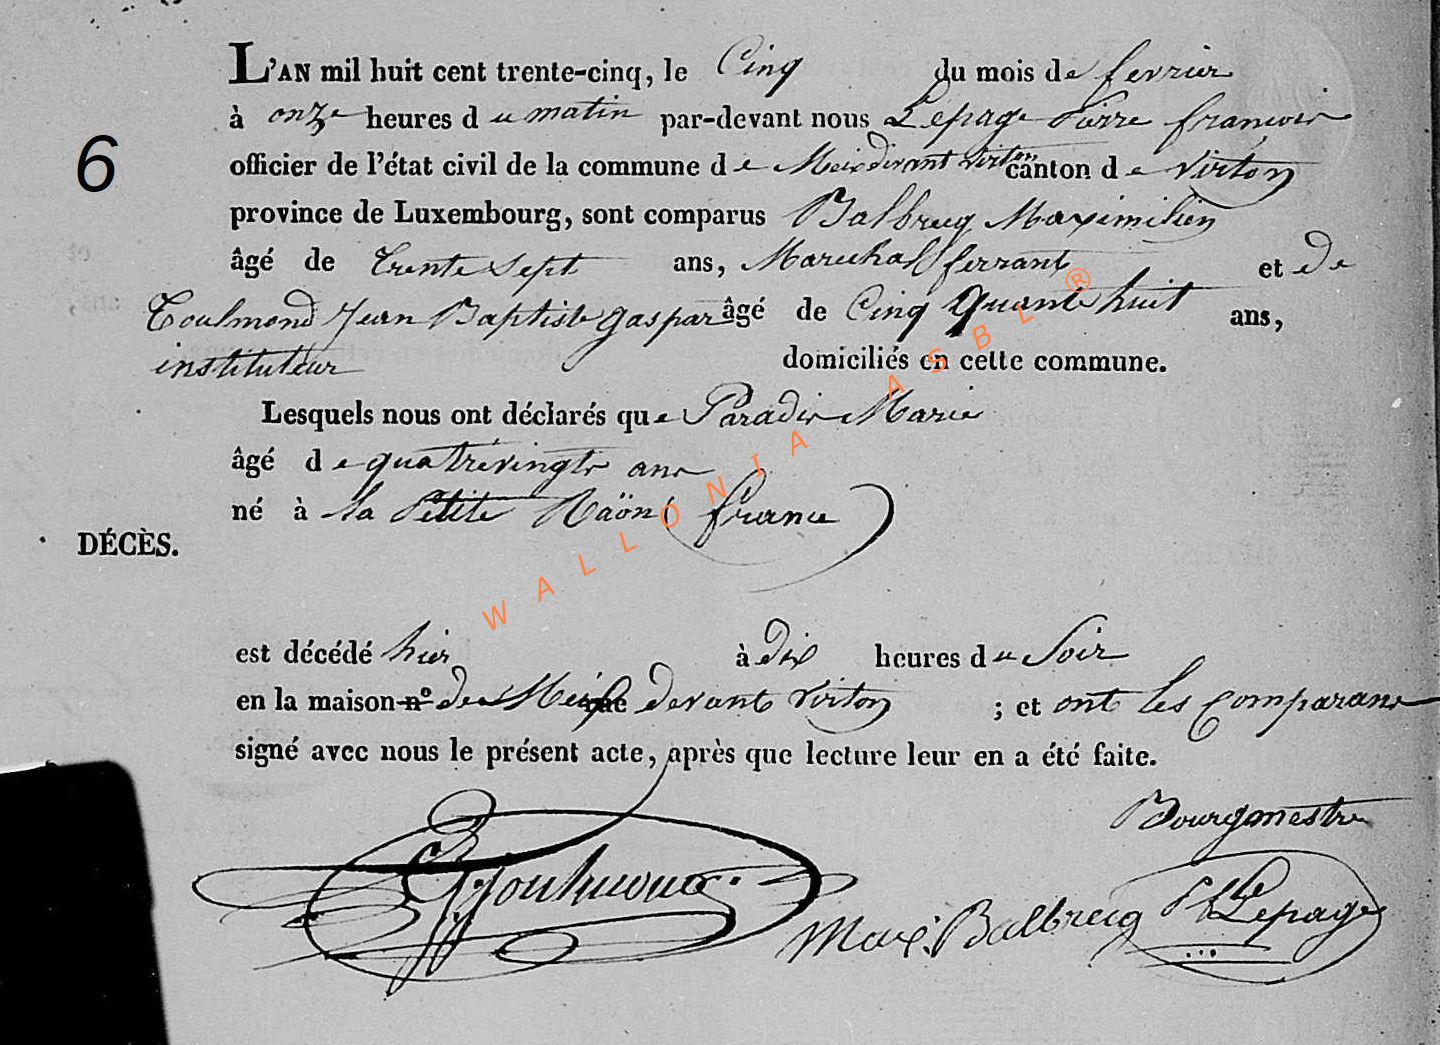 L'AN mil huit cent trente-cinq, le Cinq du mois de fevrier
à onze heures du matin par-devant nous Lepage Pierre françois
officier de l'état civil de la commune de Meix devant virton canton de virton
6
province de Luxembourg, sont comparus Balbrecq Maximilien
âgé de trente sept ans, Marechal ferrant et de
Toulmond Jean Baptiste gaspar âgé de Cinquante huit ans,
instituteur domiciliés en cette commune.
Lesquels nous ont déclarés que Paradis Marie
âgé de quatrévingts ans
né à la Petite Raön (france)
DÉCÈS.
est décédé hier à dix heures du Soir
en la maison n° de Meix devant Virton ; et ont les comparans
signé avec nous le présent acte, après que lecture leur en a été faite.
Bourgmestre
Toulmond
Max. Balbrecq
Lepage
WALLONIA ASBL ®